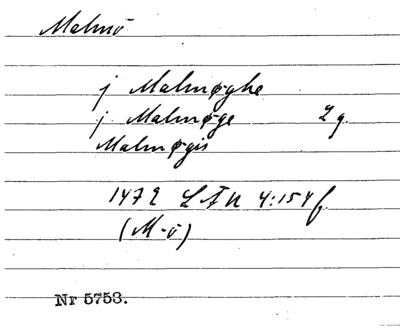 Malmö
j Malmøghe
j Malmøge 2 g.
Malmøgis
1472 LÅU 4:154 f.
(M-ö)
Nr 5753.